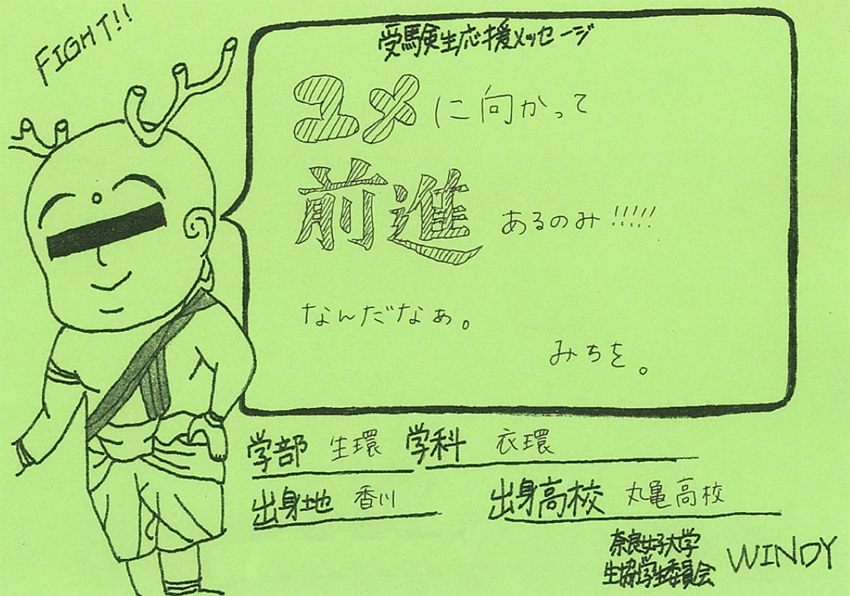 FIGHT!!
受験生応援メッセージ
ユメに向かって
前進あるのみ!!!!!
なんだなぁ。
みちを。
学部 生環 学科 衣環
出身地 香川 出身高校 丸亀高校
奈良女子大学
生協学生委員会 WINDY